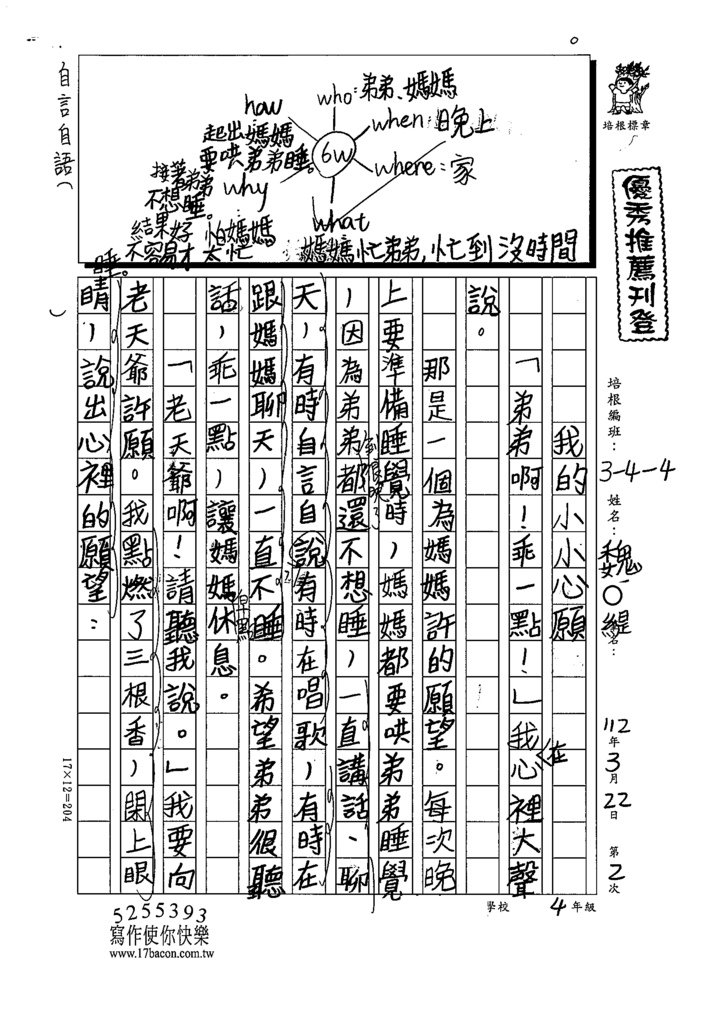 培根標章
優秀推薦刊登
培根編班：3-4-4
姓名：魏○緹
112年3月22日
第2次
學校 4年級
who:弟弟、媽媽
when:晚上
where:家
what
媽媽忙弟弟,忙到沒時間
6w
how
起出媽媽
要哄弟弟睡。
why
怕媽媽
太忙
接著弟弟
不想睡。
結果好
不容易才
睡。
自言自語(
)
我的小小心願
「弟弟啊！乖一點！」我在心裡大聲
說。
那是一個為媽媽許的願望。每次晚
上要準備睡覺時，媽媽都要哄弟弟睡覺
，因為弟弟都到很晚了還不想睡，一直講話、聊
天，有時自言自說有時在唱歌，有時在
跟媽媽聊天，一直不睡。希望弟弟很聽
話，乖一點，讓媽媽早點休息。
「老天爺啊！請聽我說。」我要向
老天爺許願。我點燃了三根香，閉上眼
睛，說出心裡的願望：
17×12=204
5255393
寫作使你快樂
www.17bacon.com.tw